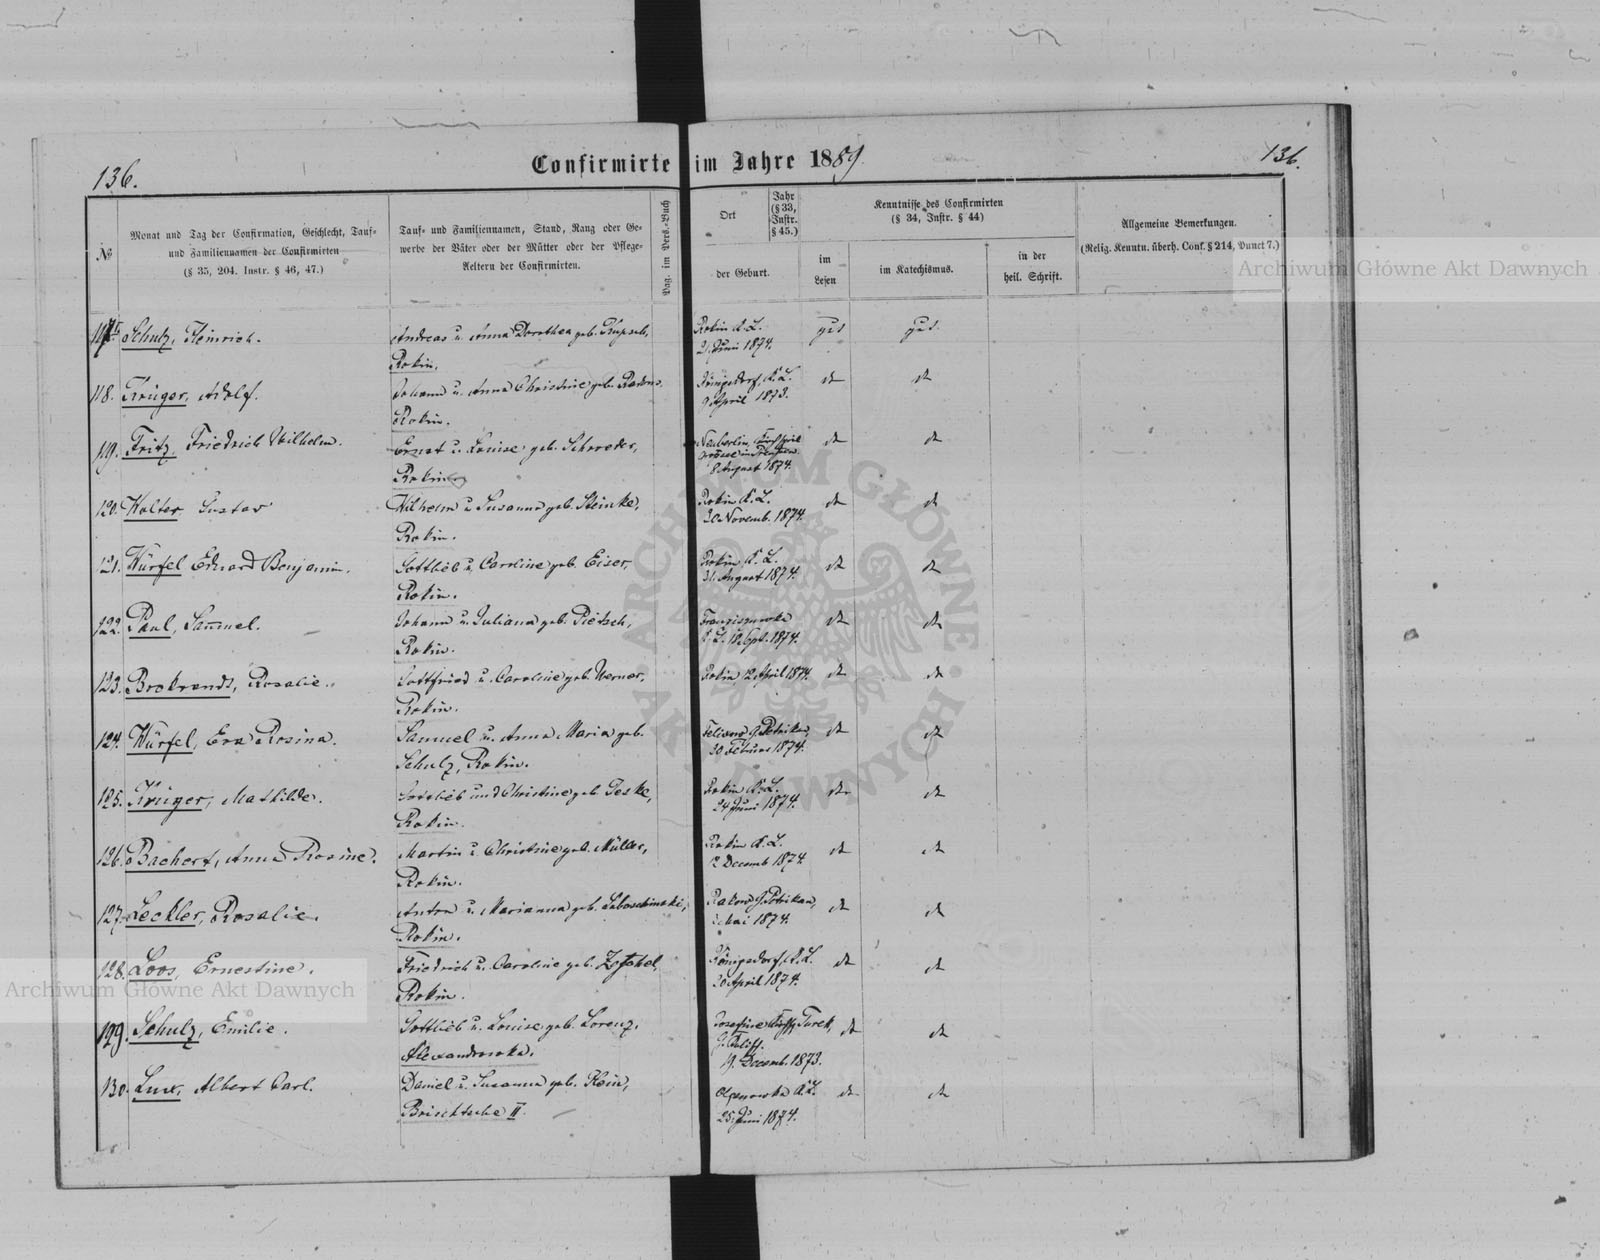 136.
Confirmirte im Jahre 1889
136.
№
Monat und Tag der Confirmation, Geschlecht, Tauf-
und Familiennamen der Confirmirten
(§ 35, 204. Instr. § 46, 47.)
Tauf- und Familiennamen, Stand, Rang oder Ge-
werbe der Väter oder der Mütter oder der Pflege-
Aeltern der Confirmirten.
Pag. im Pers.-Buch
Ort
Jahr
(§ 33,
Instr.
§ 45.)
der Geburt.
Kenntnisse des Confirmirten
(§ 34, Instr. § 44)
im
Lesen
im Katechismus.
in der
heil. Schrift.
Allgemeine Bemerkungen.
(Relig. Kenntn. überh. Conf. § 214, Punct 7.)
Archiwum Główne Akt Dawnych
117. Schulz, Heinrich.
Andreas u. Anna Dorothea geb.
Rokin.
Rokin K. L.
2 Juni 1874.
gut
gut
118. Krüger, Adolf.
Johann u. Anna Christine geb.
Rokin.
Königsdorf, K. L.
9 April 1873.
dt
dt
119. Fritz, Friedrich Wilhelm.
Ernst u. Louise geb. Schroeder,
Rokin
Neuberlin, Kirchspiel
in Preußen
8 August 1874.
dt
dt
120. Wolter Gustav
Wilhelm u. Susanna geb. Steinke,
Rokin.
Rokin K. L.
30 Novemb. 1874.
dt
dt
121. Würfel Eduard Benjamin.
Gottlieb u. Caroline geb. Eiser,
Rokin.
Rokin K. L.
31. August 1874.
dt
dt
122. Paul, Sam̄uel.
Johann u. Juliana geb. Pietsch,
Rokin.
K. L. 18. Sept. 1874.
dt
dt
123. Brokrandt, Rosalie.
Gottfried u. Caroline geb. Werner,
Rokin.
Rokin 12. April 1874.
dt
dt
124. Würfel, Eva Rosina.
Samuel u. Anna Maria geb.
Schulz, Rokin.
G. Petrikau,
Februar 1874.
dt
dt
125. Krüger, Mathilde.
Gottlieb und Christine geb. Jeske,
Rokin.
Rokin K. L.
24 Juni 1874.
dt
dt
126. Bachert, Anna Rosine.
Martin u. Christine geb. Müller,
Rokin.
Rokin K. L.
12 Decemb 1874.
dt
dt
127. Leckler, Rosalie.
Anton u. Marianna geb.
Rokin.
G. Petrikau,
Mai 1874.
dt
dt
128. Loos, Ernestine.
Friedrich u. Caroline geb.
Rokin.
Königsdorf, K. L.
20 April 1874.
dt
dt
129. Schulz, Emilie.
Gottlieb u. Louise geb. Lorenz,
Alexandrowka.
Josefine Turek,
G. Kalisch.
19. Decemb. 1873.
dt
dt
130. Lux, Albert Carl.
Daniel u. Susanna geb. Klein,
Brischtsche II.
K. L.
25. Juni 1874.
dt
dt
ARCHIWUM GŁÓWNE AKT DAWNYCH
Archiwum Główne Akt Dawnych